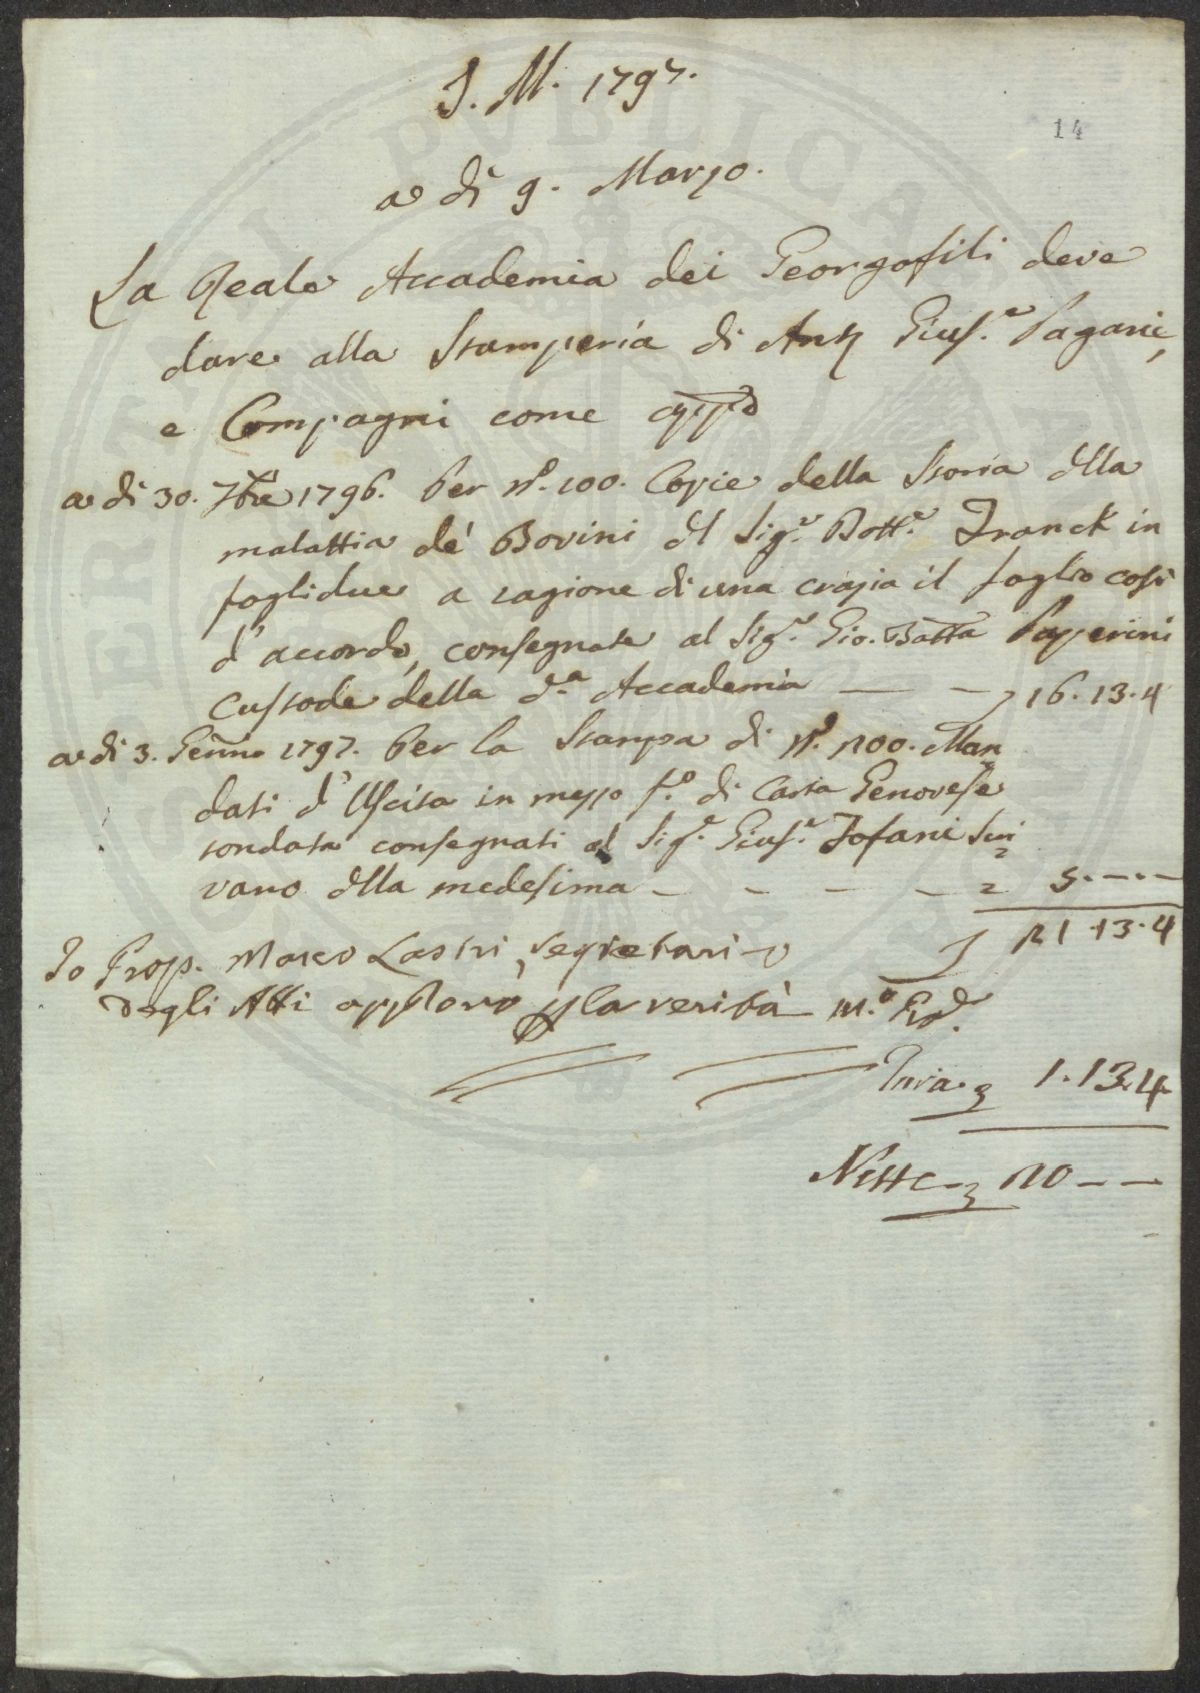 J. M. 1797.
14
a dì 9. Marzo.
La Reale Accademia dei Georgofili deve
dare alla Stamperia di Ant Gius.e Pagani,
e Compagni come app.o
a di 30. 7bre 1796. Per N.o 200. Copie della Storia dlla
malattia de' Bovini dl Sig.r Dott.e Franck in
fogli due a ragione di una crazia il foglio così
d'accordo, consegnate al Sig.r Gio. Batta Papperini
Custode della d.a Accademia — — 16.13.4
a di 3. Genno 1797. Per la Stampa di N.o 200. Man
dati d'Uscita in mezzo f.o di Carta Genovese
tondata consegnati al Sig.r Gius.e Tofani Scri
vano dlla medesima — — — — 5.—.—
21.13.4
Io Prop. Marco Lastri, Segretario
degli Atti approvo p la verità m.o pp.a
Tara 1.13.4
Nette 20 — —